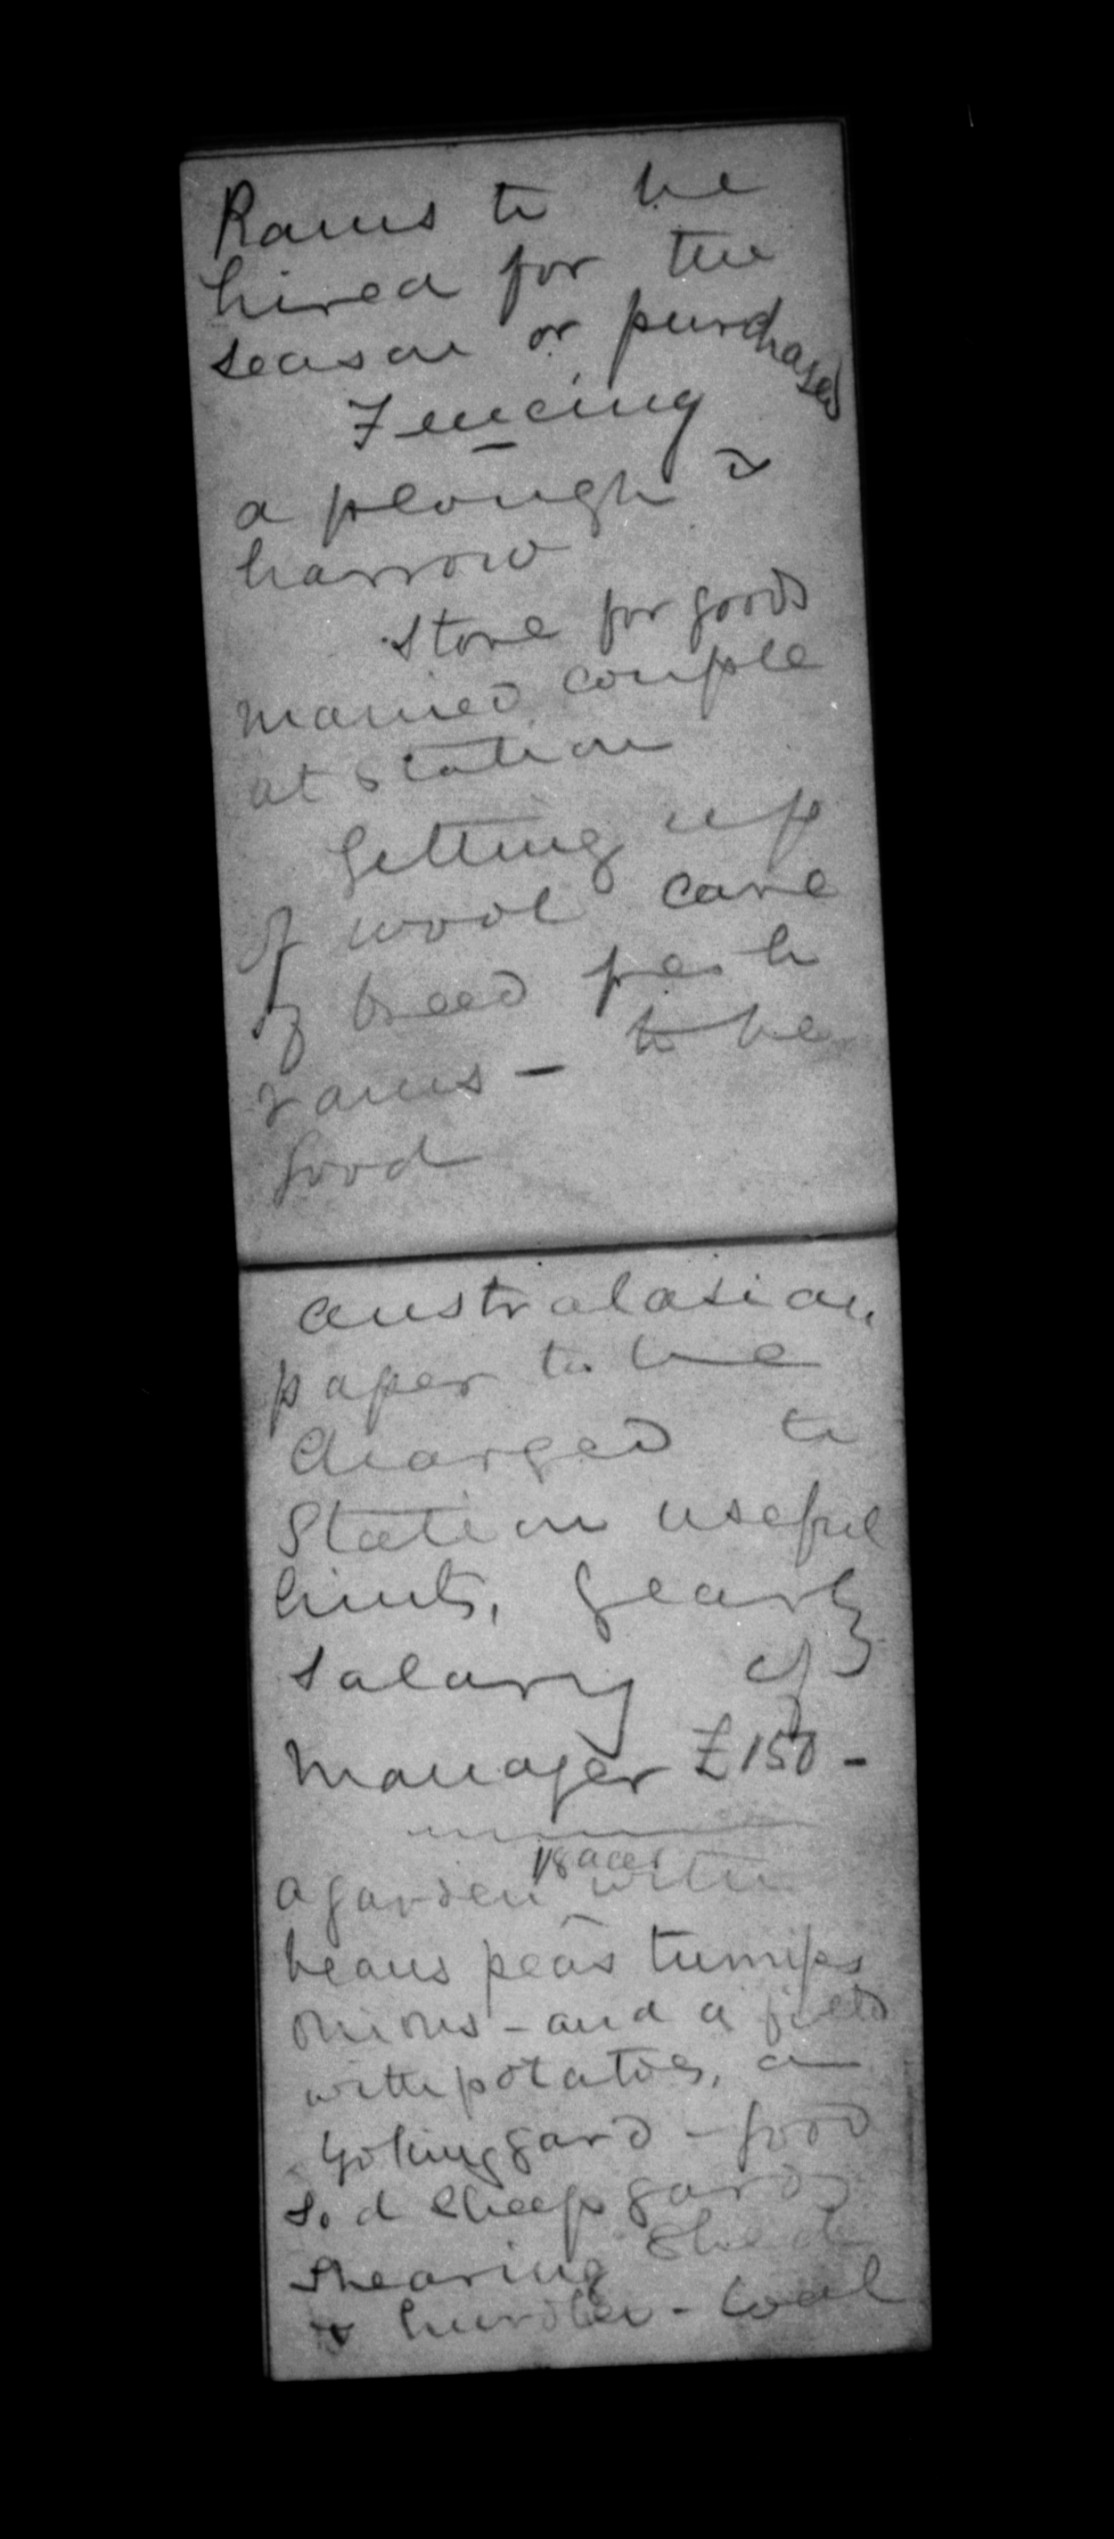 Rams to be
hired for the
season or purchased
Fencing
a plough &
harrow
Store for goods
married couple
at station
Getting up
of wool care
of breed fresh
rams - to be
good
Australasian
paper to be
charged to
Station useful
hints, yearly
salary of
manager £150 -
1/8 acre
a garden with
beans peas turnips
onions - and a field
with potatoes, a
yoking yard - good
sod sheep yards
shearing shed
& hurdles - coal